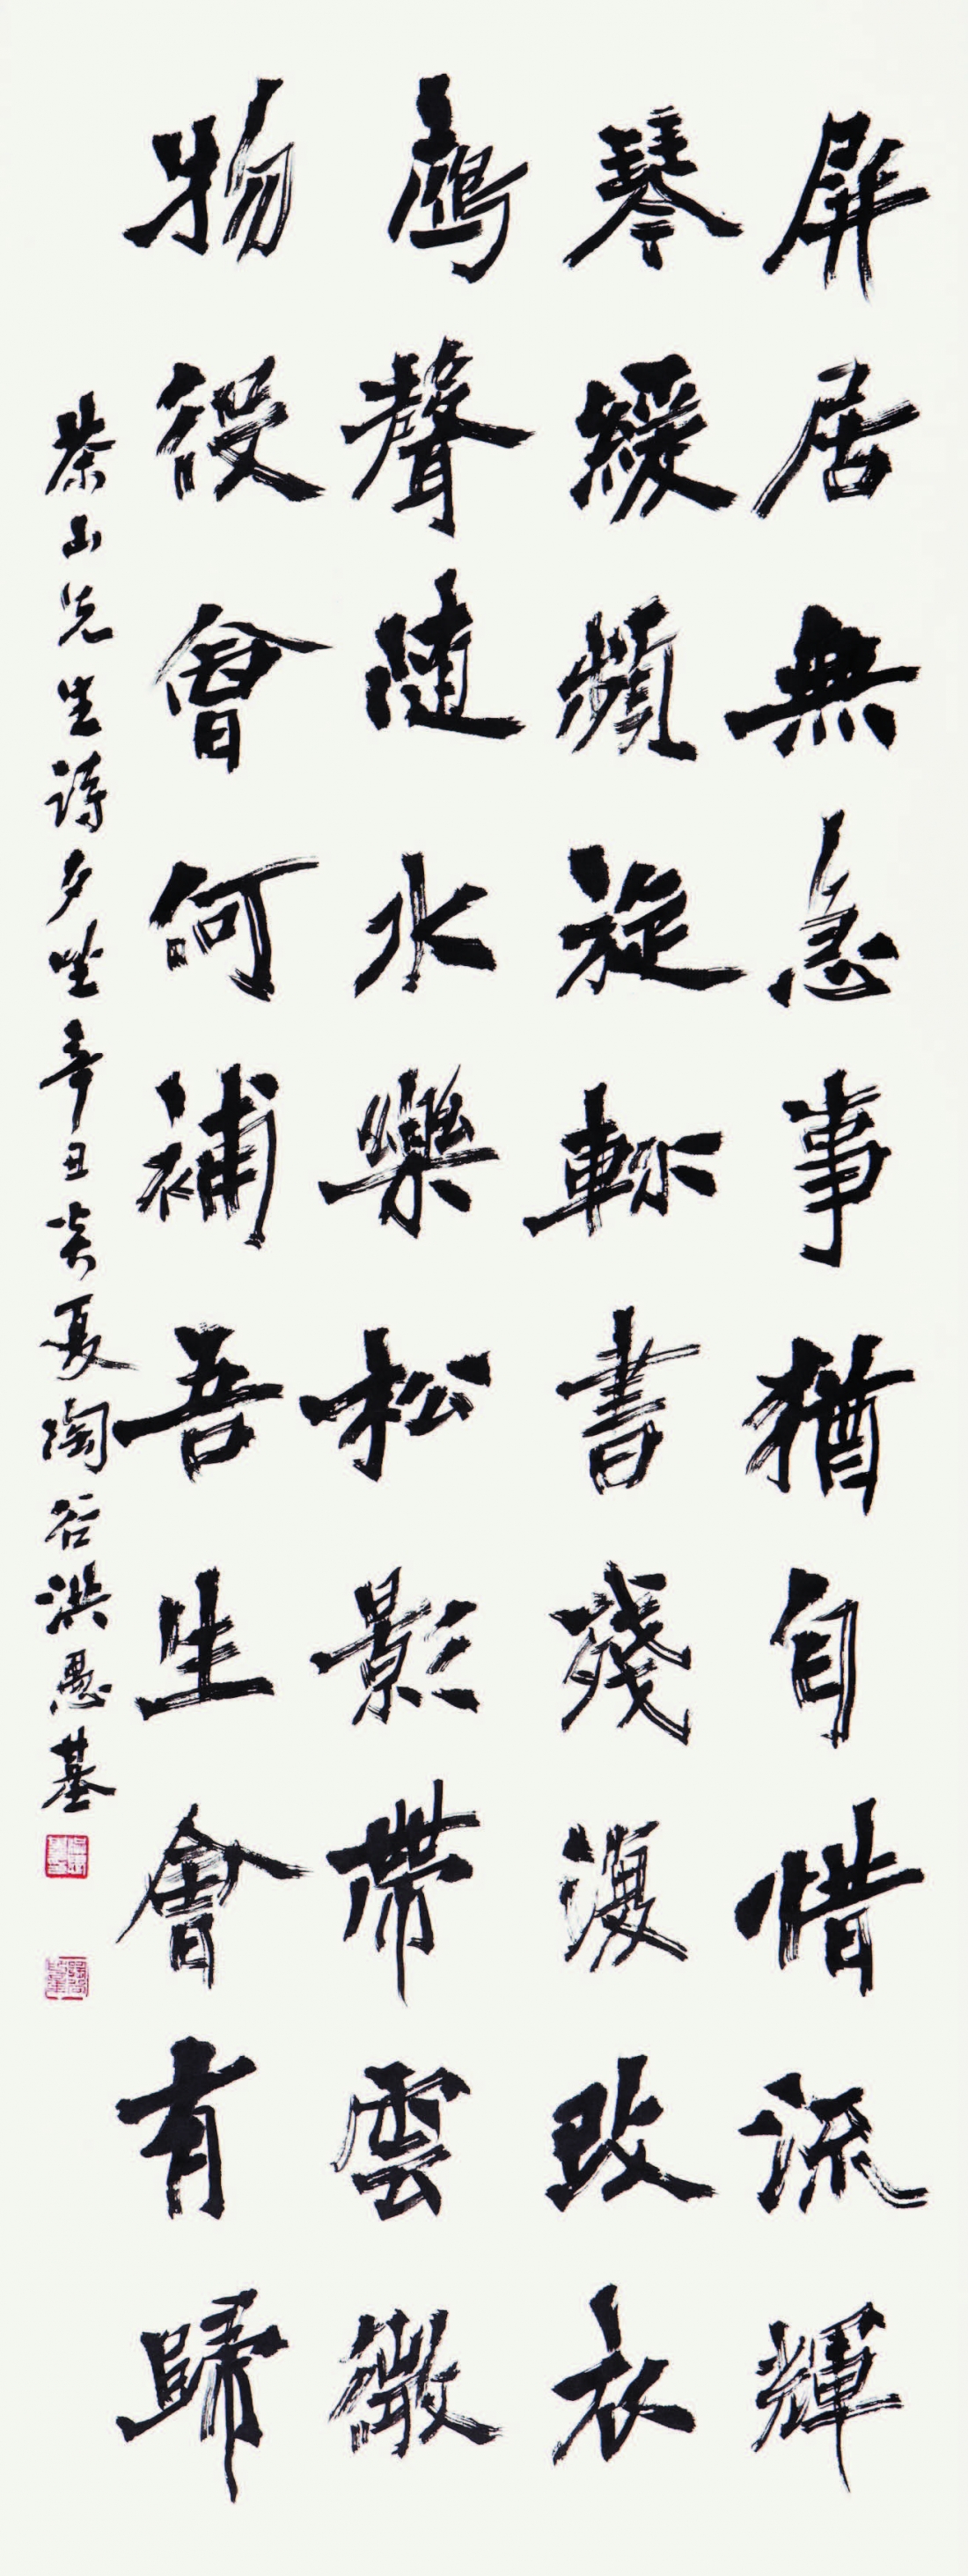 屛居無急事猶自惜流輝
琴緩頻旋軫書殘復改衣
鴈聲隨水樂松影帶雲微
物役曾何補吾生會有歸
茶山先生詩夕坐 辛丑炎夏陶谷洪愚基